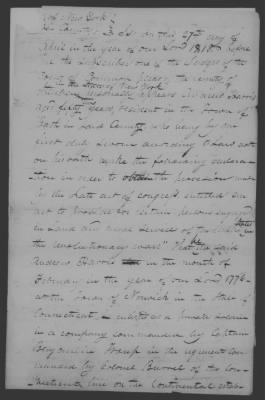 State of New York }
County } SS. on this 27th day of
April in the year of our Lord 1818 before
me the Subscriber one of the Judges of the
Court of Common pleas
in the State of New York
personally appears Andrew Harris
aged years, resident in the Town of
Bath in said County who being by me
first duly Sworn according to Law doth
on his oath make the following declara
tion in order to obtain the provision made
in the Late act of Congress entitled an
act to provide for certain persons engaged
in Land and naval Service of the united States
in the revolutionary war" That he the said
Andrew Harris in the month of
February in the year of our Lord 1776
at the Town of Norwich in the State of
Connecticut enlisted as a private Soldier
in a company commanded by Captain
Benjamin Throop in the regiment com
manded by Colonel Burrel of the Con
necticut line on the Continental estab